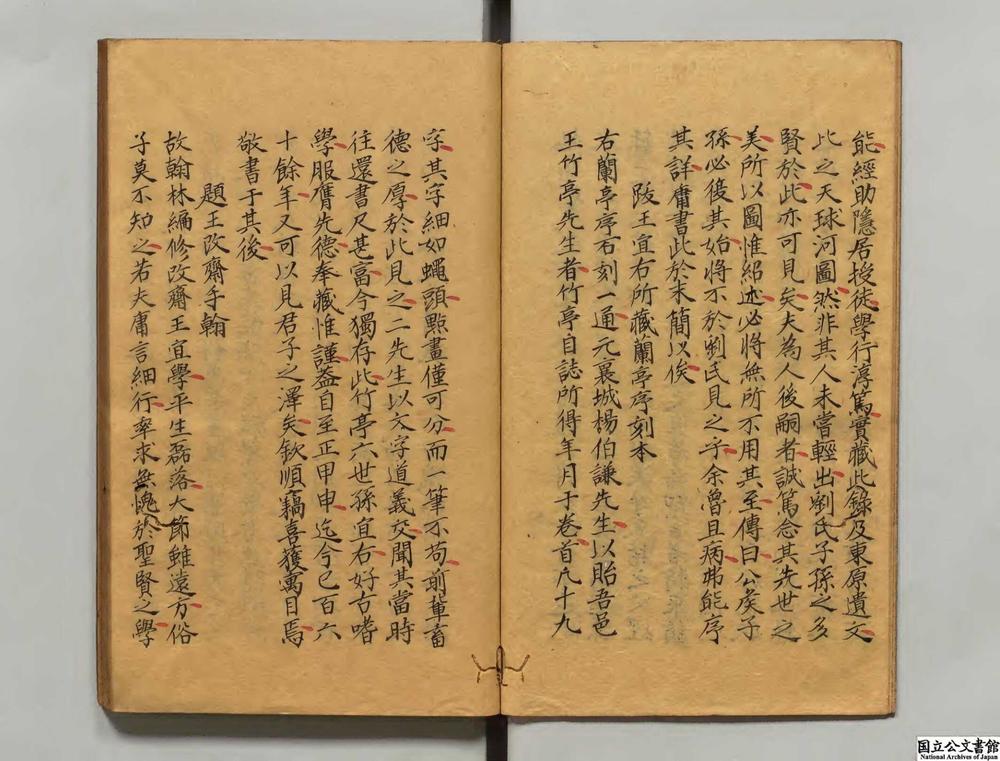 能經助隱居授徒學行淳篤實藏此錄及東原遺文
比之天球河圖然非其人未嘗輕出劉氏子孫之多
賢於此亦可見矣夫為人後嗣者誠篤念其先世之
美所以圖惟紹述必將無所不用其至傳曰公矦子
孫必復其始將不於劉氏見之乎余曾且病弗能序
其詳庸書此於末簡以俟
跋王宜右所藏蘭亭序刻本
右蘭亭序石刻一通元襄城楊伯謙先生以貽吾邑
王竹亭先生者竹亭自誌所得年月于卷首凡十九
字其字細如蠅頭點畫僅可分而一筆不苟前輩蓄
德之厚於此見之二先生以文字道義交聞其當時
往還書尺甚富今獨存此竹亭六世孫宜右好古嗜
學服膺先德奉藏惟謹蓋自至正甲申迄今已百六
十餘年又可以見君子之澤矣欽順竊喜獲寓目焉
敬書于其後
題王改齋手翰
故翰林編修改齋王宜學平生磊落大節雖遠方俗
子莫不知之若夫庸言細行率求無愧於聖賢之學
国立公文書館
National Archives of Japan